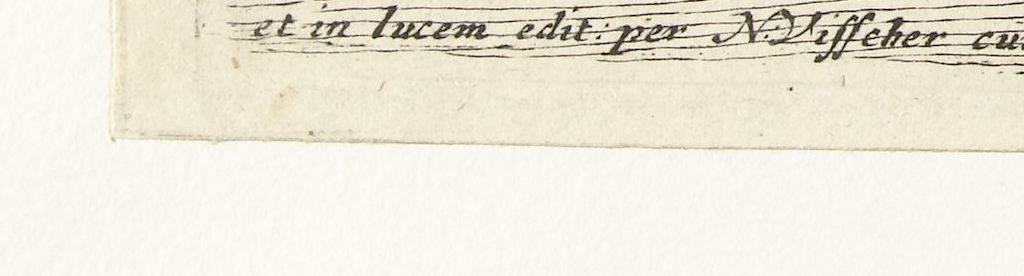 et in lucem edit: per N. Visscher cu